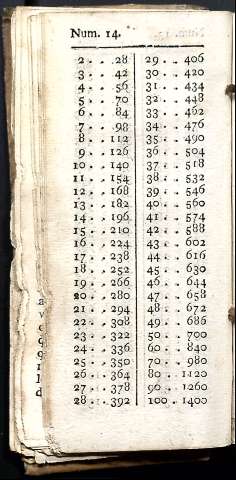 Num. 14.
2 . . 28 29 . . 406
3 . . 42 30 . . 420
4 . . 56 31 . . 434
5 . . 70 32 . . 448
6 . . 84 33 . . 462
7 . . 98 34 . . 476
8 . . 112 35 . . 490
9 . . 126 36 . . 504
10 . . 140 37 . . 518
11 . . 154 38 . . 532
12 . . 168 39 . . 546
13 . . 182 40 . . 560
14 . . 196 41 . . 574
15 . . 210 42 . . 588
16 . . 224 43 . . 602
17 . . 238 44 . . 616
18 . . 252 45 . . 630
19 . . 266 46 . . 644
20 . . 280 47 . . 658
21 . . 294 48 . . 672
22 . . 308 49 . . 686
23 . . 322 50 . . 700
24 . . 336 60 . . 840
25 . . 350 70 . . 980
26 . . 364 80 . . 1120
27 . . 378 90 . . 1260
28 . . 392 100 . . 1400